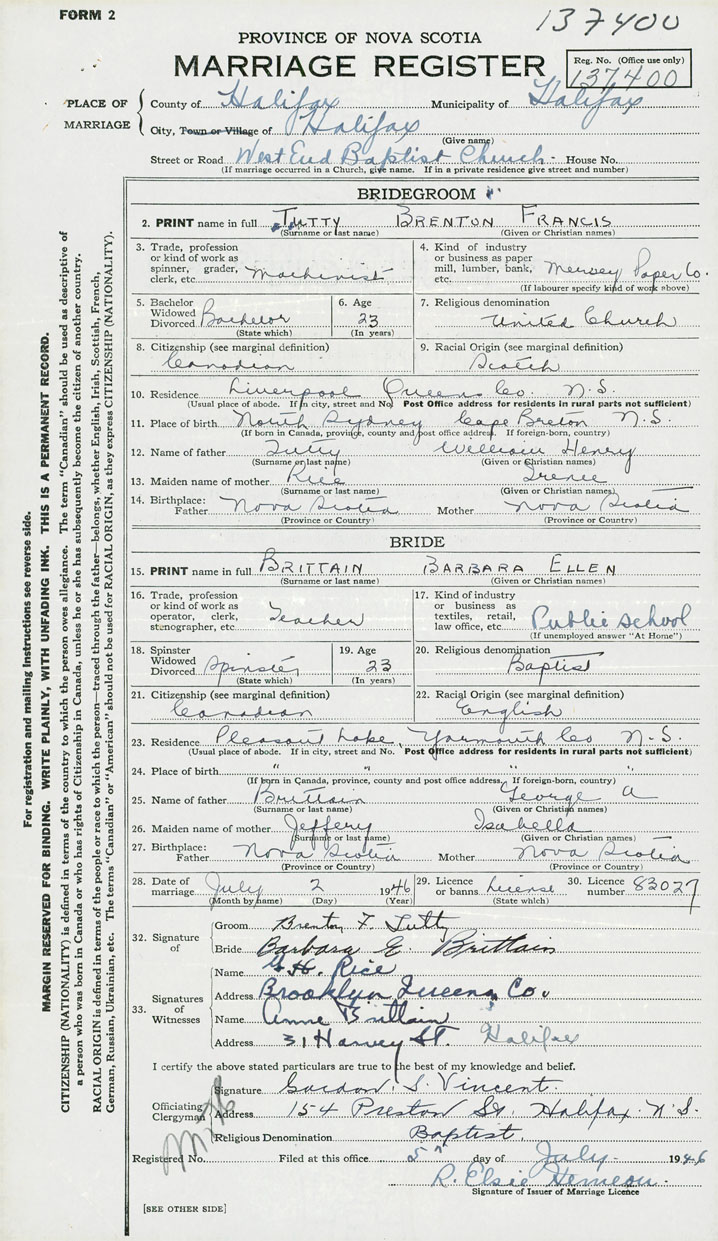 FORM 2
137400
PROVINCE OF NOVA SCOTIA
MARRIAGE REGISTER
Reg. No. (Office use only)
137400
PLACE OF MARRIAGE
County of Halifax Municipality of Halifax
City, Town or Village of Halifax
(Give name)
Street or Road West End Baptist Church - House No.
(If marriage occurred in a Church, give name. If in a private residence give street and number)
BRIDEGROOM
2. PRINT name in full TUTTY BRENTON FRANCIS
(Surname or last name) (Given or Christian names)
3. Trade, profession or kind of work as spinner, grader, clerk, etc. Machinist
4. Kind of industry or business as paper mill, lumber, bank, etc. Mersey Paper Co.
(If labourer specify kind of work above)
5. Bachelor Widowed Divorced Bachelor
(State which)
6. Age 23
(In years)
7. Religious denomination United Church
8. Citizenship (see marginal definition) Canadian
9. Racial Origin (see marginal definition) Scotch
10. Residence Liverpool Queens Co. N.S.
(Usual place of abode. If in city, street and No. Post Office address for residents in rural parts not sufficient)
11. Place of birth North Sydney Cape Breton N.S.
(If born in Canada, province, county and post office address. If foreign-born, country)
12. Name of father Tutty William Henry
(Surname or last name) (Given or Christian names)
13. Maiden name of mother Rice Irene
(Surname or last name) (Given or Christian names)
14. Birthplace: Father Nova Scotia Mother Nova Scotia
(Province or Country) (Province or Country)
BRIDE
15. PRINT name in full BRITTAIN BARBARA ELLEN
(Surname or last name) (Given or Christian names)
16. Trade, profession or kind of work as operator, clerk, stenographer, etc. Teacher
17. Kind of industry or business as textiles, retail, law office, etc. Public School
(If unemployed answer "At Home")
18. Spinster Widowed Divorced Spinster
(State which)
19. Age 23
(In years)
20. Religious denomination Baptist
21. Citizenship (see marginal definition) Canadian
22. Racial Origin (see marginal definition) English
23. Residence Pleasant Lake, Yarmouth Co N.S.
(Usual place of abode. If in city, street and No. Post Office address for residents in rural parts not sufficient)
24. Place of birth " " " "
(If born in Canada, province, county and post office address. If foreign-born, country)
25. Name of father Brittain George A
(Surname or last name) (Given or Christian names)
26. Maiden name of mother Jeffery Isabella
(Surname or last name) (Given or Christian names)
27. Birthplace: Father Nova Scotia Mother Nova Scotia
(Province or Country) (Province or Country)
28. Date of marriage July 2 1946
(Month by name) (Day) (Year)
29. Licence or banns License
(State which)
30. Licence number 83027
32. Signature of
Groom Brenton F. Tutty
Bride Barbara E. Brittain
33. Signatures of Witnesses
Name G. H. Rice
Address Brooklyn Queens Co.
Name Anne Brittain
Address 31 Harvey St. Halifax
I certify the above stated particulars are true to the best of my knowledge and belief.
Officiating Clergyman
Signature Gordon S. Vincent.
Address 154 Preston St. Halifax N.S.
Religious Denomination Baptist.
Registered No. Filed at this office 5th day of July 1946
R. Elsie Hemeon
Signature of Issuer of Marriage Licence
[SEE OTHER SIDE]
For registration and mailing instructions see reverse side.
MARGIN RESERVED FOR BINDING. WRITE PLAINLY, WITH UNFADING INK. THIS IS A PERMANENT RECORD.
CITIZENSHIP (NATIONALITY) is defined in terms of the country to which the person owes allegiance. The term "Canadian" should be used as descriptive of
a person who was born in Canada or who has rights of Citizenship in Canada, unless he or she has subsequently become the citizen of another country.
RACIAL ORIGIN is defined in terms of the people or race to which the person—traced through the father—belongs, whether English, Irish, Scottish, French,
German, Russian, Ukrainian, etc. The terms "Canadian" or "American" should not be used for RACIAL ORIGIN, as they express CITIZENSHIP (NATIONALITY).